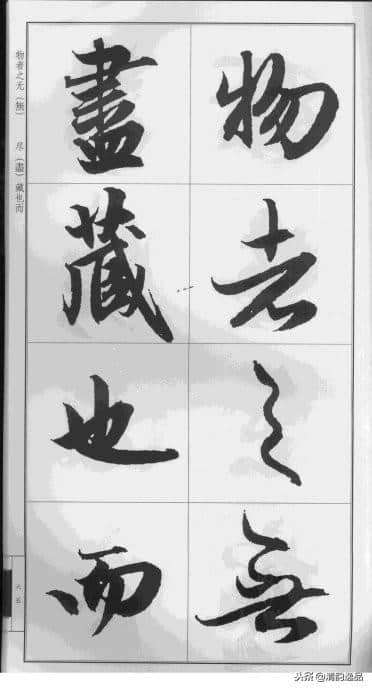 物者之無
盡藏也而
物者之无(無) 尽(盡)藏也而
六五
头条@清韵逸品